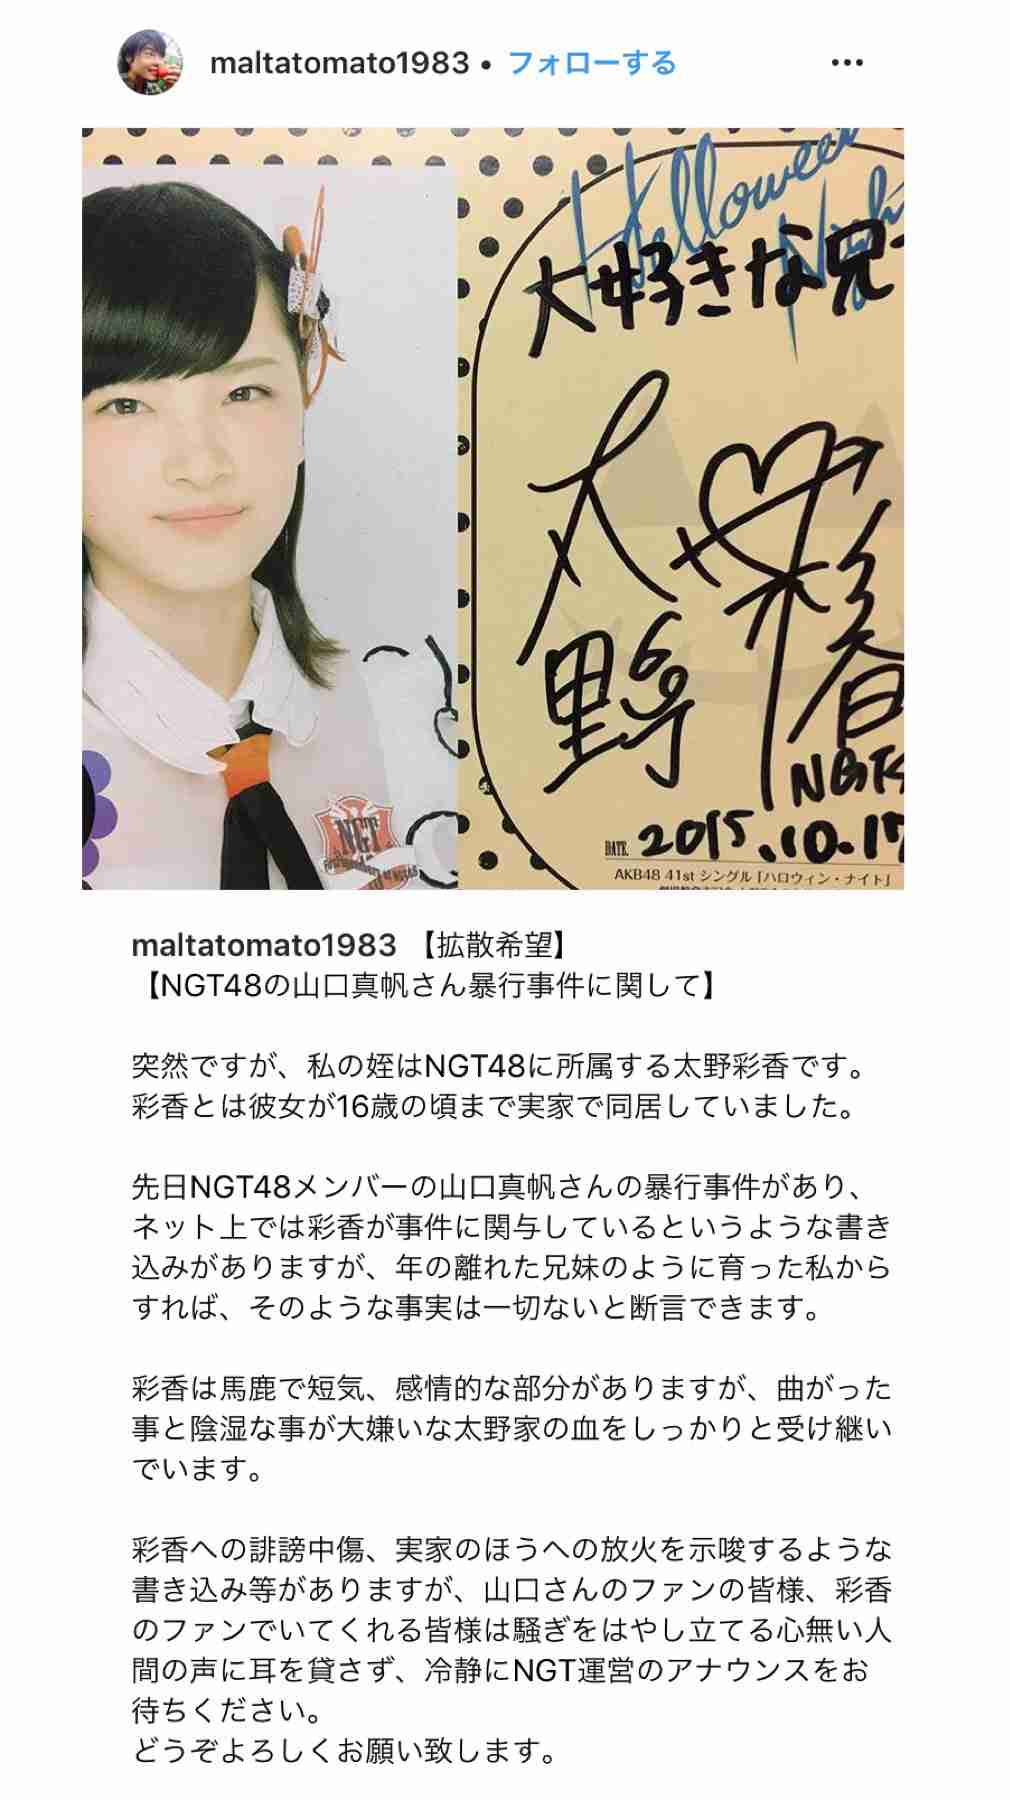 maltatomato1983 • フォローする
Halloween
Nigh
大好きな兄
太野
彩香
NGT
NGT4
DATE. 2015.10.17
AKB48 41st シングル「ハロウィン・ナイト」
maltatomato1983 【拡散希望】
【NGT48の山口真帆さん暴行事件に関して】
突然ですが、私の姪はNGT48に所属する太野彩香です。
彩香とは彼女が16歳の頃まで実家で同居していました。
先日NGT48メンバーの山口真帆さんの暴行事件があり、
ネット上では彩香が事件に関与しているというような書き
込みがありますが、年の離れた兄妹のように育った私から
すれば、そのような事実は一切ないと断言できます。
彩香は馬鹿で短気、感情的な部分がありますが、曲がった
事と陰湿な事が大嫌いな太野家の血をしっかりと受け継い
でいます。
彩香への誹謗中傷、実家のほうへの放火を示唆するような
書き込み等がありますが、山口さんのファンの皆様、彩香
のファンでいてくれる皆様は騒ぎをはやし立てる心無い人
間の声に耳を貸さず、冷静にNGT運営のアナウンスをお
待ちください。
どうぞよろしくお願い致します。